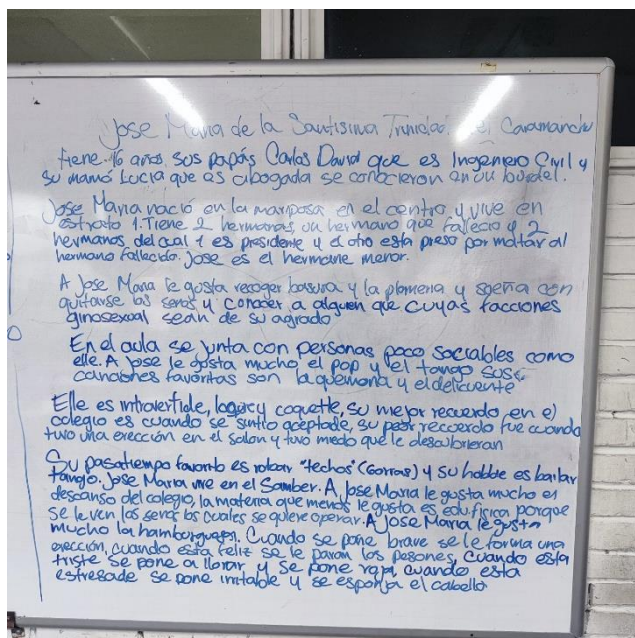 Jose Maria de la Santisima Trinidad del Caramanchu
tiene 16 años, sus papás Carlos David que es Ingeniero Civil y
su mamá Lucia que es abogada se conocieron en un burdel.
Jose Maria nació en la mariposa en el centro y vive en
estrato 1. Tiene 2 hermanas, un hermano que fallecio y 2
hermanos, del cual 1 es presidente y el otro esta preso por matar al
hermano fallecido. Jose es el hermane menor.
A Jose Maria le gusta recoger basura y la plomeria y sueña con
quitarse los senos y conocer a alguien que cuyas facciones
ginosexual sean de su agrado
En el aula se junta con personas poco sociables como
elle. A Jose le gusta mucho el pop y el tango sus
canciones favoritas son la quemona y el delicuente
Elle es introvertide, loquc y coquette, su mejor recuerdo en el
colegio es cuando se sintio aceptade, su peor recuerdo fue cuando
tuvo una erección en el salon y tuvo miedo que le descubrieran
Su pasatiempo favorito es robar "techos" (Gorras) y su hobbie es bailar
tango. Jose Maria vive en el Samber. A Jose Maria le gusta mucho el
descanso del colegio, la materia que menos le gusta es edu. fisica porque
se le ven los senos los cuales se quiere operar. A Jose Maria le gusta
mucho la hamburguesa. Cuando se pone brave se le forma una
erección, cuando esta feliz se le paran los pesones, cuando esta
triste se pone a llorar y se pone roja, cuando esta
estresade se pone irritable y se esponja el cabello